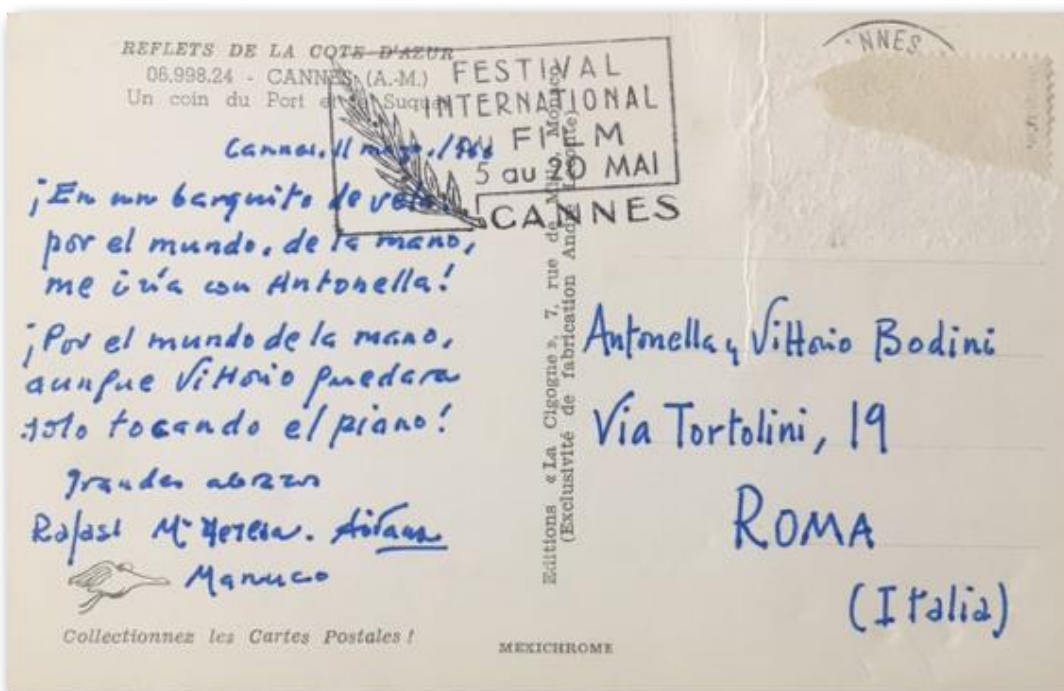 REFLETS DE LA COTE D'AZUR
06.998.24 - CANNES (A.-M.)
Un coin du Port et Suquet
FESTIVAL
INTERNATIONAL
FILM
5 au 20 MAI
CANNES
NNES
Cannes. 11 mayo. /966
¡En un barquito de vela,
por el mundo, de la mano,
me iría con Antonella!
¡Por el mundo de la mano,
aunque Vittorio quedara
solo tocando el piano!
Grandes abrazos
Rafael Mª Teresa. Aitana
Manuco
Collectionnez les Cartes Postales !
Editions « La Cigogne », 7, rue de Monaco
(Exclusivité de fabrication André Leconte)
MEXICHROME
Antonella y Vittorio Bodini
Via Tortolini, 19
ROMA
(Italia)